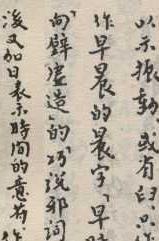 以示振動，或有臼只
作早晨的晨字「早
向壁虛造」的巧說邪詞
後又加日表示時間的意符